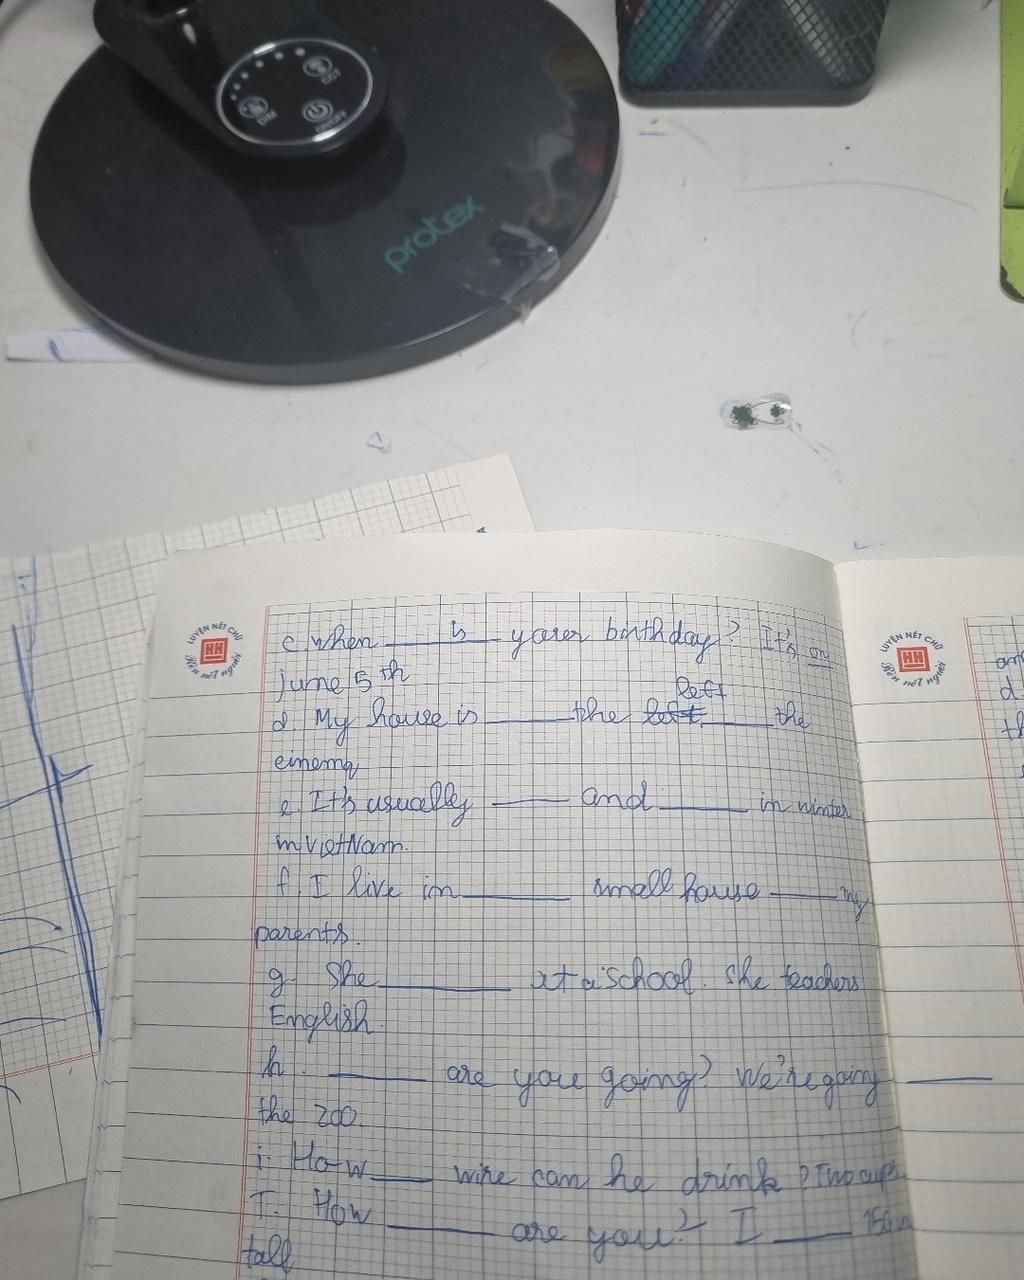 DIM
CCT
ON/OFF
protex
LUYỆN NÉT CHỮ
HH
Rèn nết người
LUYỆN NÉT CHỮ
HH
Rèn nết người
c. when ____is____ your birthday? It's on
june 5 th
left
d. My house is ____ the left ____ the
cinema
e. It's usually ____ and ____ in winter
in VietNam.
f. I live in ____ small house ____ my
parents.
g. She ____ at a school. She teachers
English.
h. ____ are you going? We're going ____
the zoo.
i. How ____ wine can he drink? Two cups
J. How ____ are you? I ____
tall